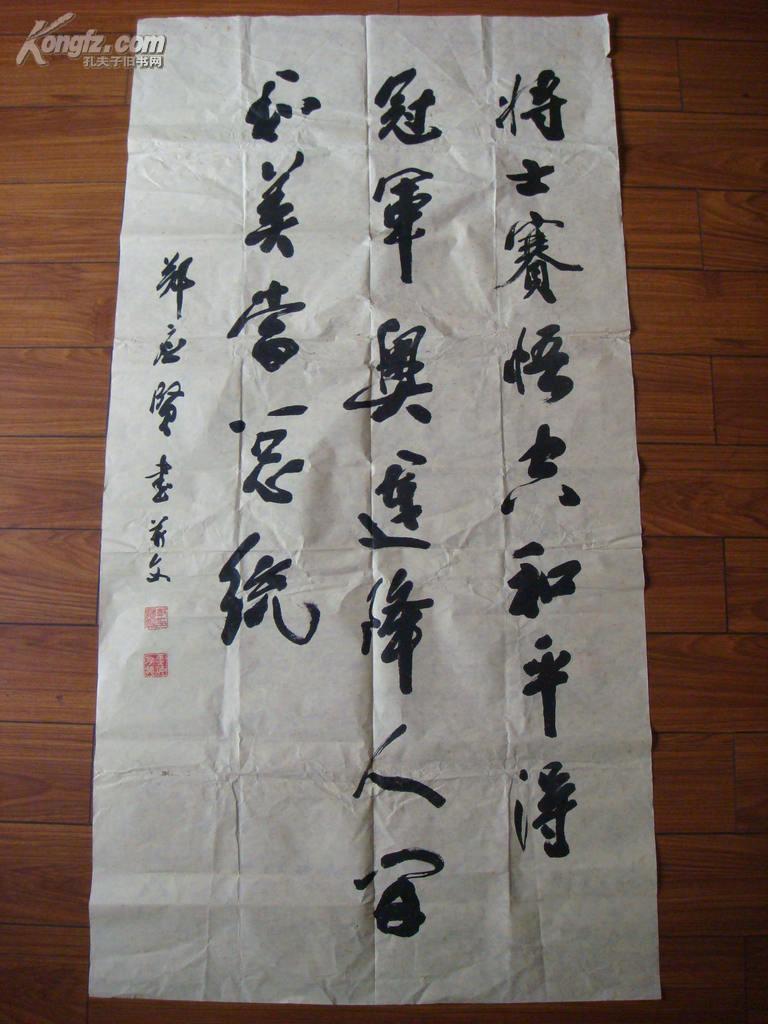 Kongfz.com
孔夫子旧书网
将士賽悟空和平得
冠軍奥運降人间
和美當总统
郑应贤書并文